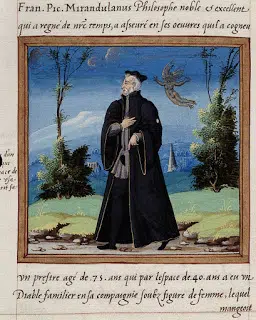 Fran. Pic. Mirandulanus Philosophe noble & excellent
qui a regné de nr̃e temps, a asseuré en ses oeuures qu'il a cogneu
Vn prestre agé de .75. ans qui par lespace de .40. ans a eu vn
Diable familier en sa compaignie soubz figure de femme, lequel
mangeoit